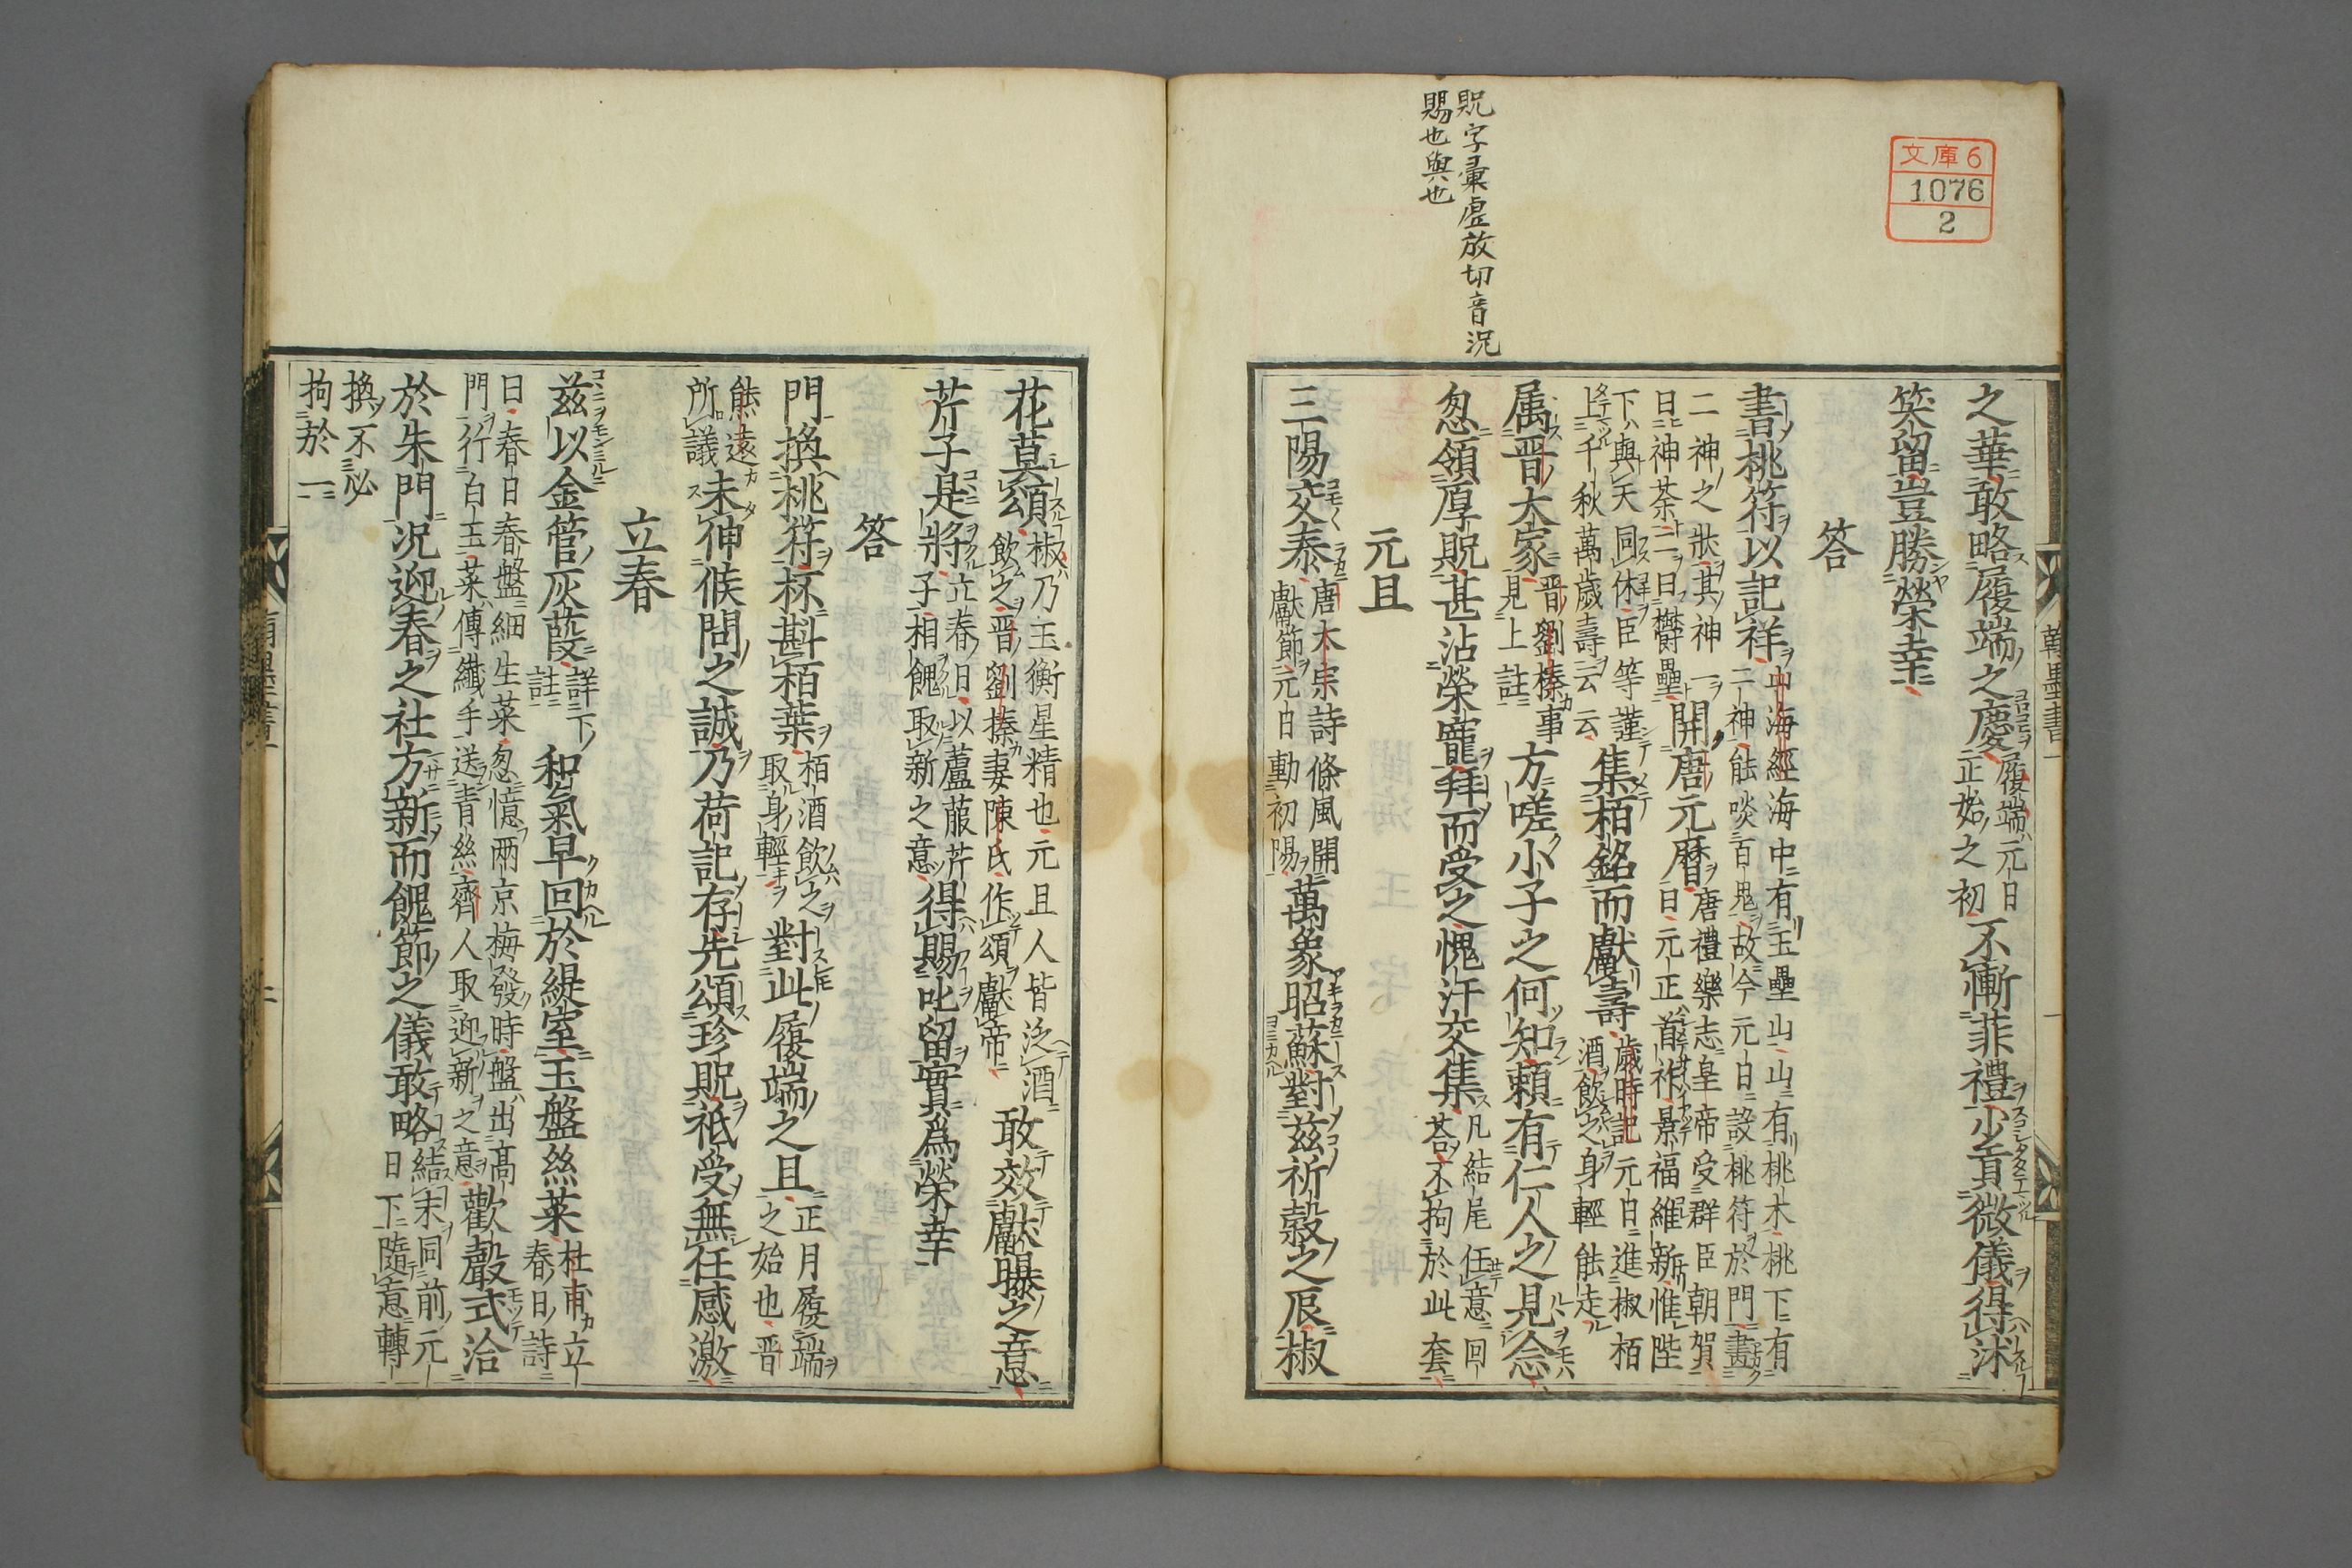 文庫6
1076
2
貺字彙虛放切音況
賜也與也
之華敢略履端之慶履端元日正始之初不慚菲禮少貢微儀得沐
笑留豈勝榮幸
答
書桃符以記祥山海經海中有玉壘山山有桃木桃下有
二神能啖百鬼故今元日設桃符於門畫
二神之狀其神一
曰神荼二曰欝壘開唐元曆唐禮樂志皇帝受群臣朝賀
曰元正首祚景福維新惟陛
下與天同休臣等謹
上千秋萬歲壽云云集栢銘而獻壽歲時記元日進椒栢
酒飲之身輕能走
属晋大家晋劉榛事
見上註方嗟小子之何知頼有仁人之見念
忽領厚貺甚沾榮寵拜而受之愧汗交集凡結尾任意回
荅不拘於此套
元旦
三陽交泰唐太宗詩條風開
獻節元日動初陽萬象昭蘇對茲祈穀之辰椒
花莫頌椒乃玉衡星精也元旦人皆泛酒
飲之晋劉榛妻陳氏作頌獻帝敢效獻曝之意
芹子是將立春日以蘆菔芹
子相餽取新之意得賜叱留實爲榮幸
答
門換桃符杯斟栢葉栢酒飲之
取身輕對此履端之旦正月履端
之始也晋
熊遠
所議未伸候問之誠乃荷記存先頌珍貺祇受無任感激
立春
茲以金管灰葭詳下
註和氣早回於緹室玉盤絲菜杜甫立
春日詩
曰春日春盤細生菜忽憶兩京梅發時盤出高
門行白玉菜傳纖手送青絲齊人取迎新之意歡聲式洽
於朱門況迎春之社方新而餽節之儀敢略結末同前元
日下隨意轉
換不必
拘於一
翰墨書一